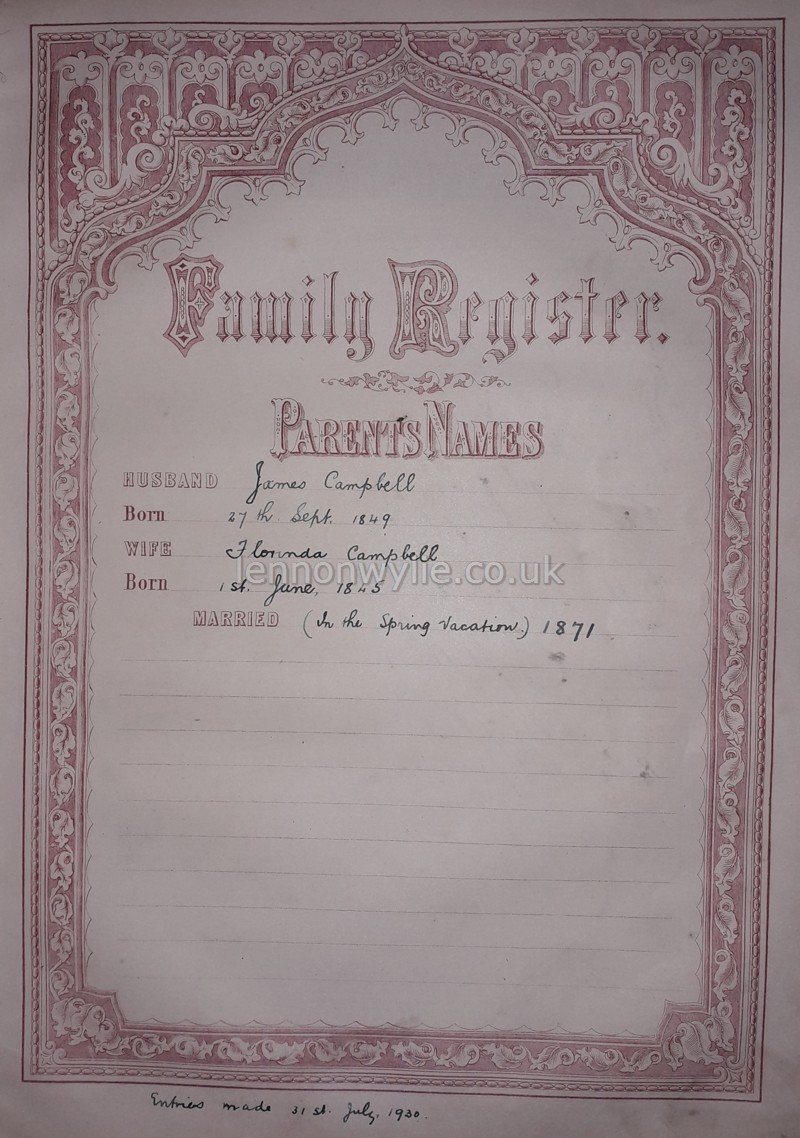 Family Register.
PARENTS NAMES
HUSBAND James Campbell
Born 27th Sept. 1849
WIFE Florinda Campbell
lennonwylie.co.uk
Born 1st. June, 1845
MARRIED (In the Spring Vacation.) 1871
Entries made 31st. July, 1930.